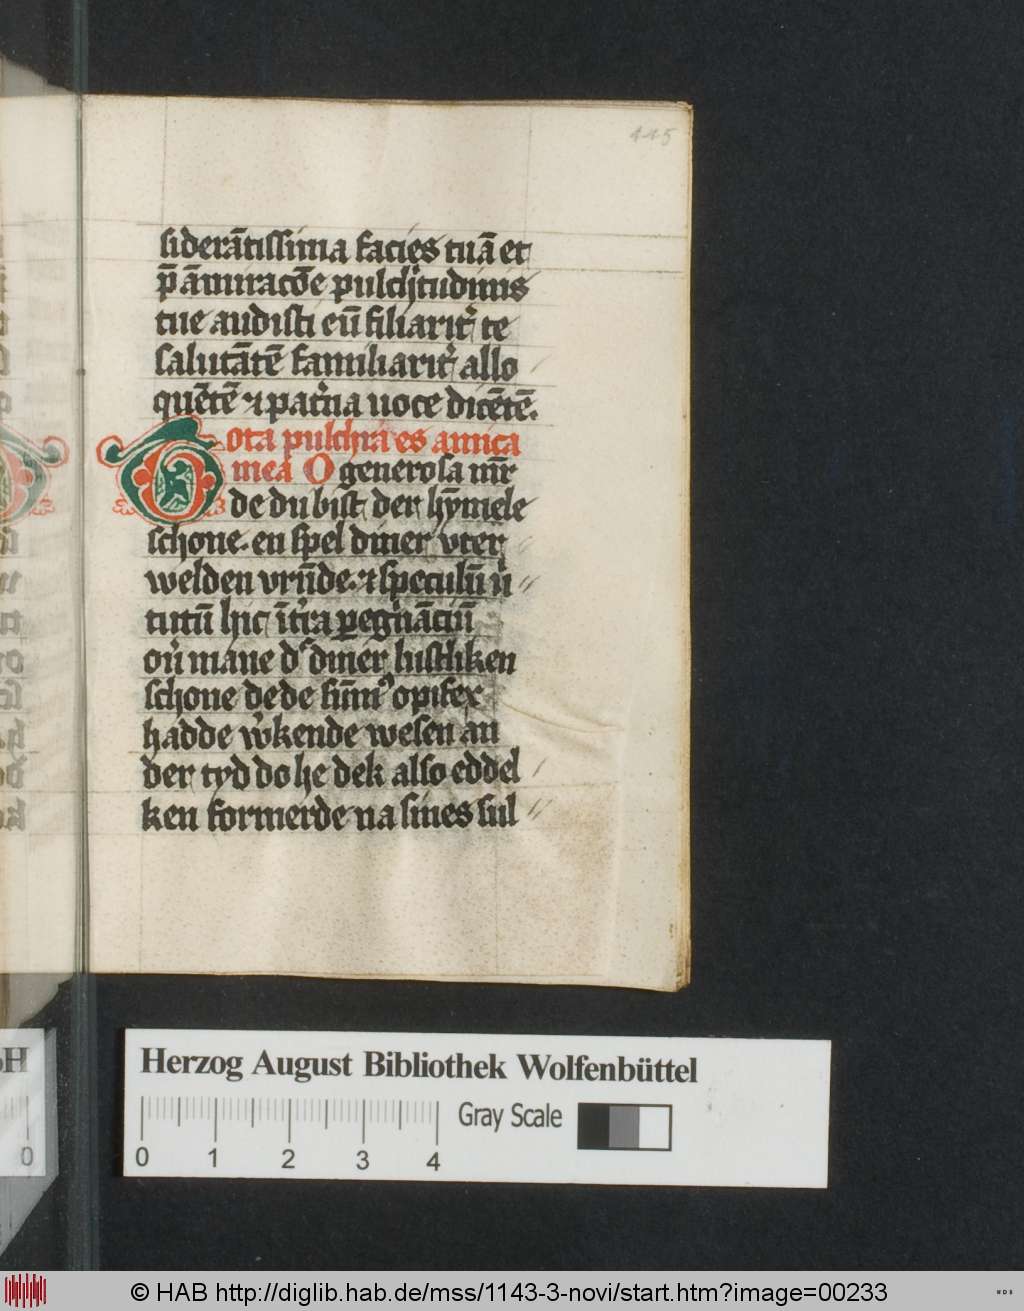 445
siderātissima facies tuā et
p̄ āmiracōe pulch͛tudinis
tue audisti eū filiarit͛ te
salutātē familiarit͛ allo
quētē ⁊ pat͛na uoce dicētē.
Tota pulchra es amica
mea O generosa mr̄
de du bist der hȳmele
schone. en spel diner vter
welden vrūde. ⁊ speculū v͛
tutū hic īt͛ra pegnāciū
ou͛ mane d͛ diner lustliken
schone dede sūm9 opifex
hadde w͛kende wesen an
der tyd do he dek also eddel
ken formerde na sines sul
Herzog August Bibliothek Wolfenbüttel
0 1 2 3 4
Gray Scale
0
© HAB http://diglib.hab.de/mss/1143-3-novi/start.htm?image=00233